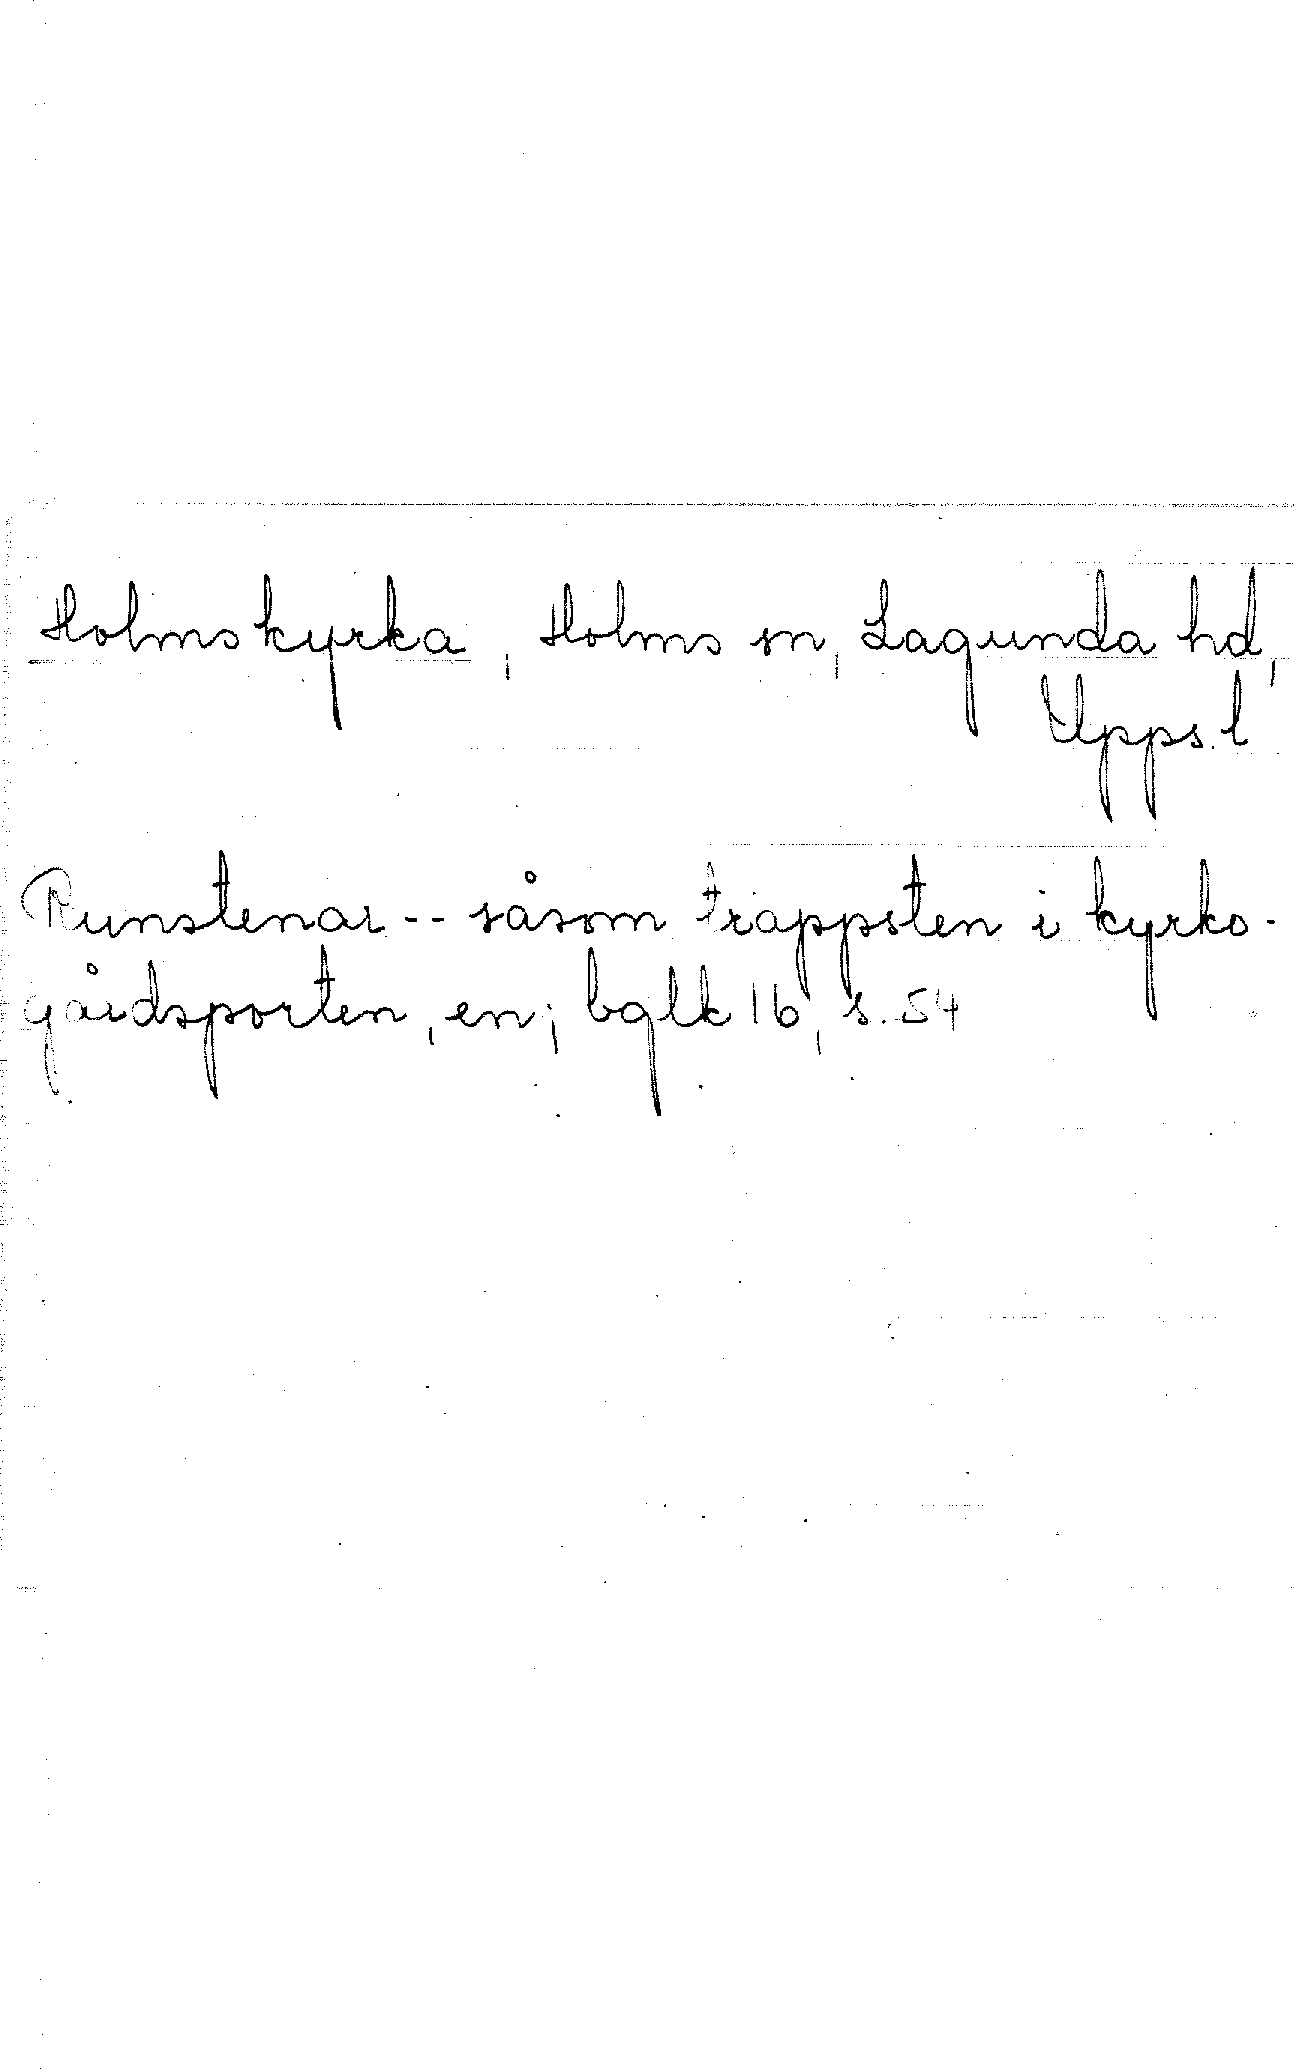 Holms kyrka, Holms sn, Lagunda hd,
Upps. l
Runstenar -- såsom trappsten i kyrko-
gårdsporten, en; bglk 16, s. 54